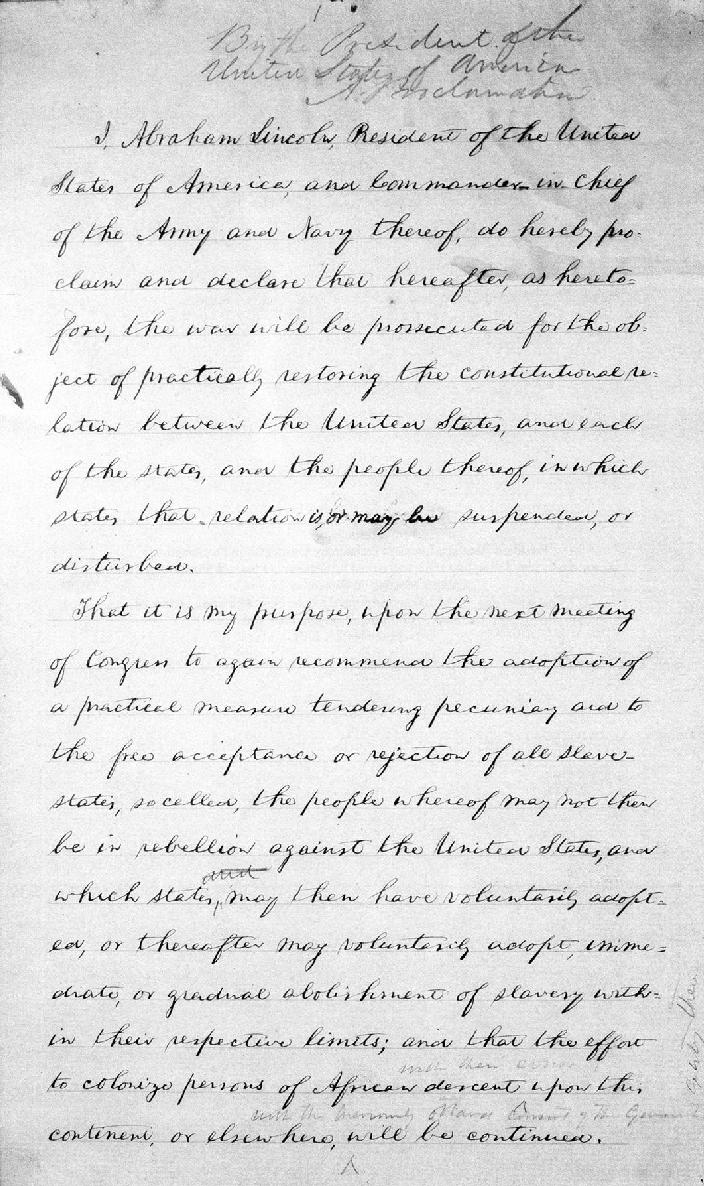 By the President of the
United States of America
A Proclamation
I, Abraham Lincoln, President of the United
States of America, and Commander-in-Chief
of the Army and Navy thereof, do hereby pro-
claim and declare that hereafter, as hereto-
fore, the war will be prossecuted for the ob-
ject of practically restoring the constitutional re-
lation between the United States, and each
of the states, and the people thereof, in which
states that relation is, or may be suspended, or
disturbed.
That it is my purpose, upon the next meeting
of Congress to again recommend the adoption of
a practical measure tendering pecuniary aid to
the free acceptance or rejection of all slave-
states, so called, the people whereof may not then
be in rebellion against the United States, and
and
which states, may then have voluntarily adopt-
ed, or thereafter may voluntarily adopt, imme-
diate, or gradual abolishment of slavery with-
in their respective limits; and that the effort
with their consent
to colonize persons of African descent upon this
with the of the
continent, or elsewhere, will be continued.